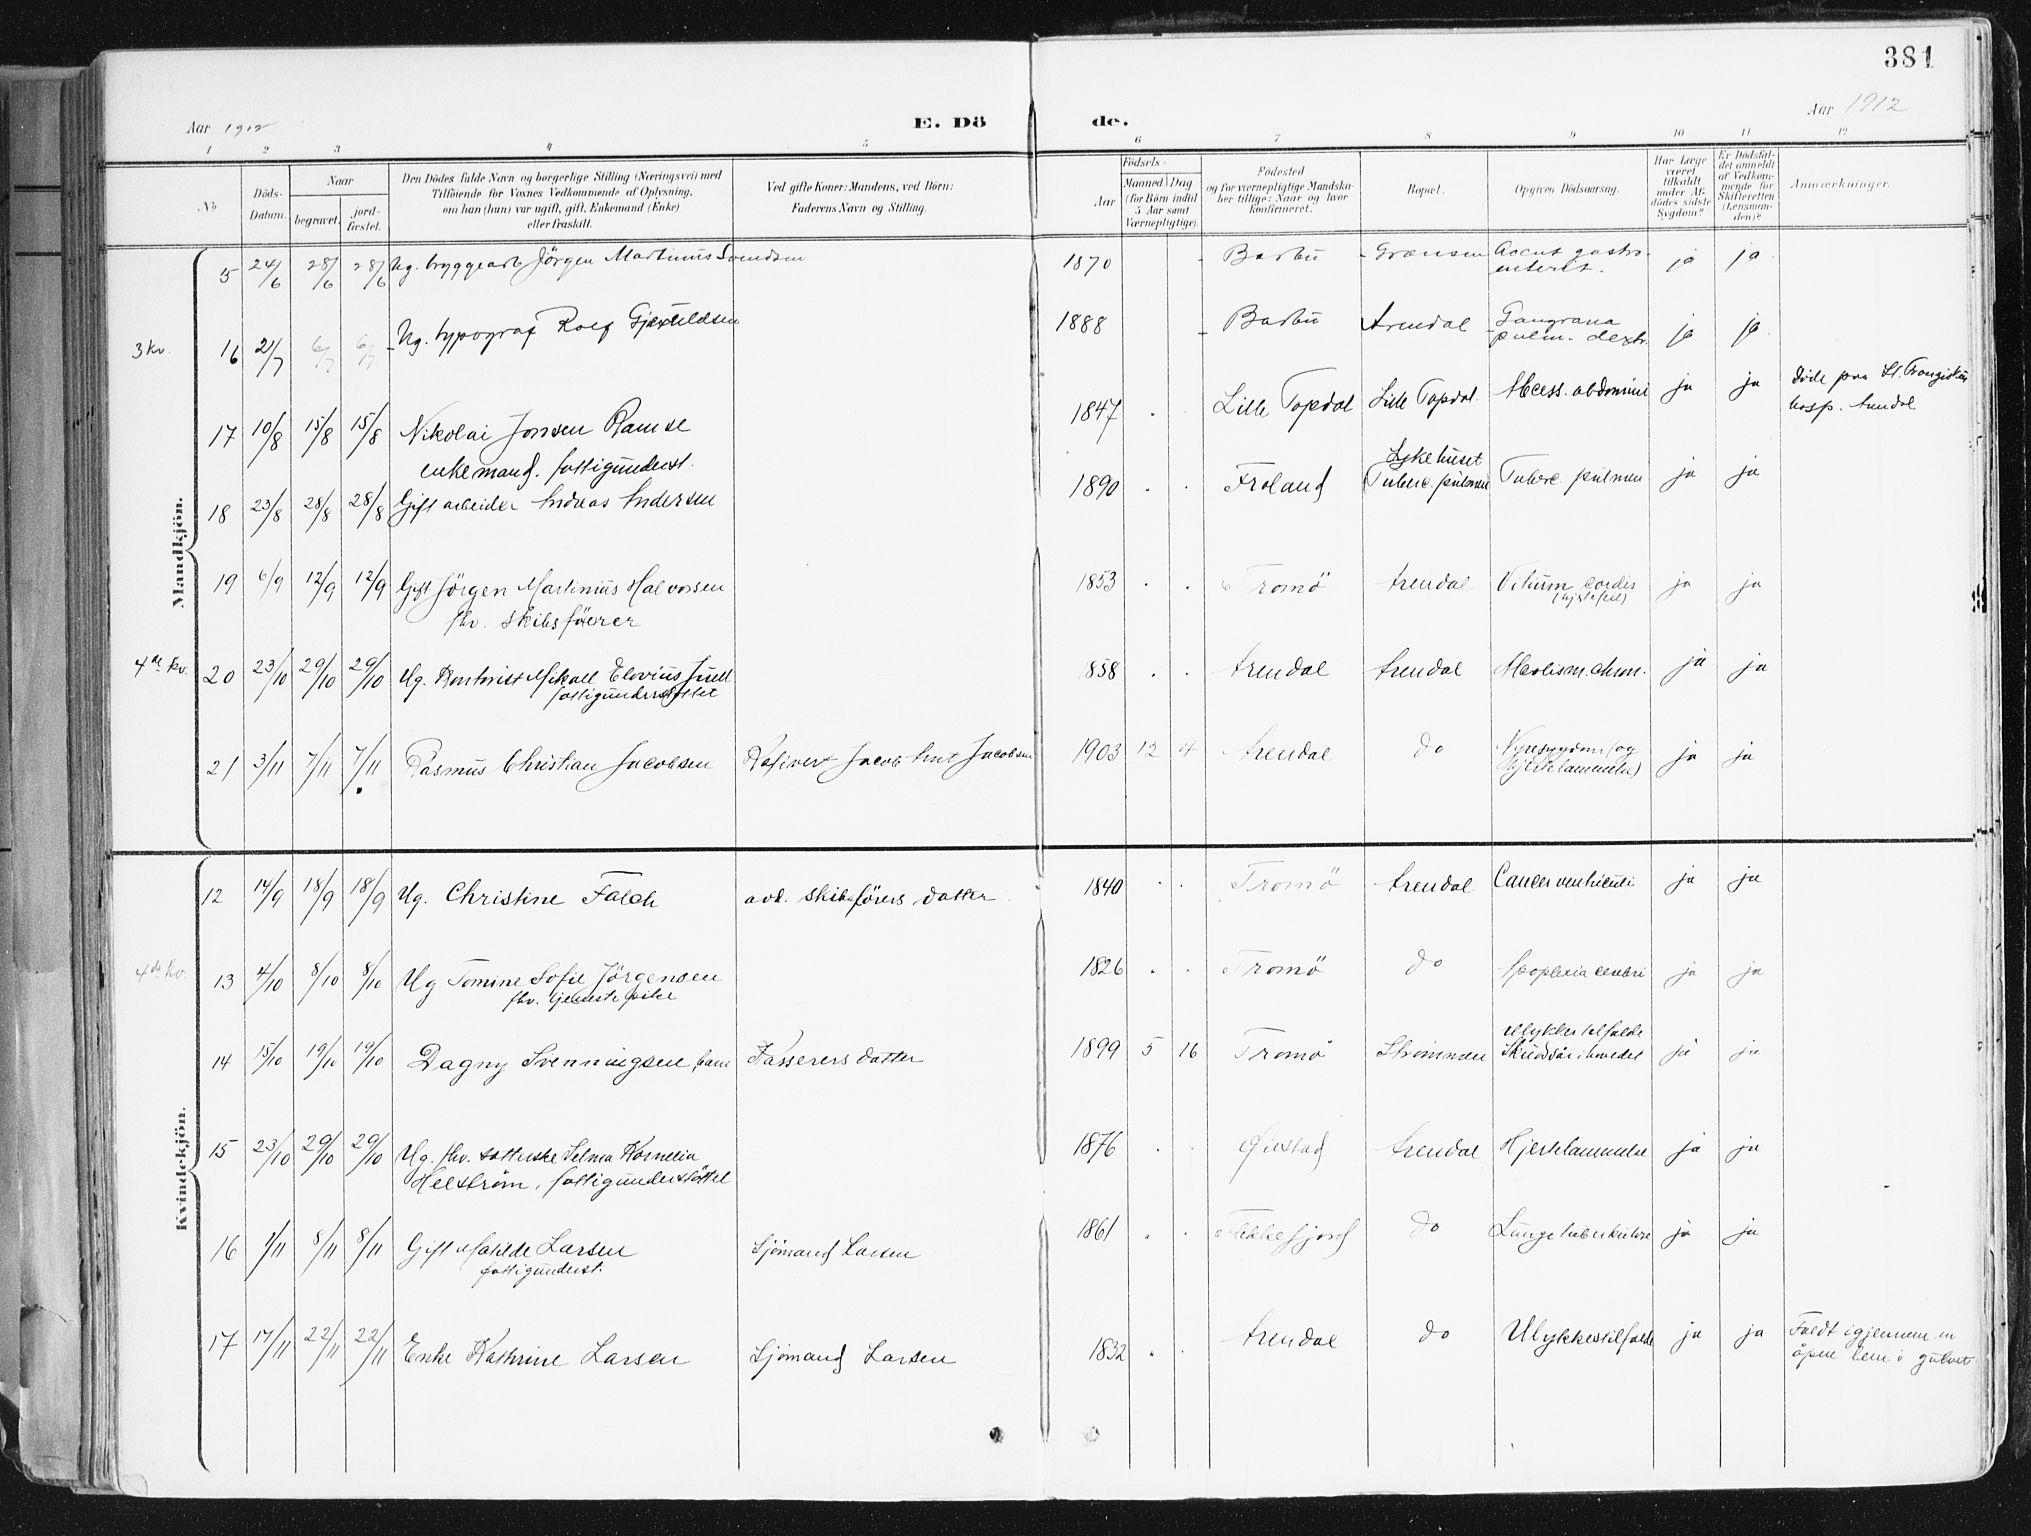 381
Aar 1912
E. Dö
de.
Aar 1912
1 2 3 4 5 6 7 8 9 10 11 12
No
Döds-
Datum.
Naar
begravet.
jord-
fæstet.
Den Dödes fulde Navn og borgerlige Stilling (Næringsvei) med
Tilföiende for Voxnes Vedkommende af Oplysning,
om han (hun) var ugift, gift, Enkemand (Enke)
eller fraskilt.
Ved gifte Koner: Mandens, ved Börn:
Faderens Navn og Stilling.
Födsels-
Aar
Maaned Dag
(for Börn indtil
5 Aar samt
Værnepligtige).
Födested
og for værnepligtige Mandska-
ber tillige: Naar og hvor
konfirmeret.
Bopæl.
Opgiven Dödsaarsag.
Har Læge
været
tilkaldt
under Af-
dödes sidste
Sygdom?
Er Dödsfal-
det anmeldt
af Vedkom-
mende for
Skifteretten
(Lensman-
den)?
Anmærkninger.
Mandkjön.
5 24/6 28/6 28/6 Ug. bryggearb Jörgen Martinius Svendsen 1870 Barbu Grænsen Accut gastro
enterit. ja ja
3 kv. 16 2/7 6/7 6/7 Ug. typograf Rolf Gjeruldsen 1888 Barbu Arendal Gangræna
pulm. dextr. ja ja
17 10/8 15/8 15/8 Nikolai Jonsen Ramse 1847 Lille Topdal Lille Topdal Abcess. abdomini ja ja Döde paa St. Frangiskus
hosp. Arendal
enkemand. fattigunderst.
18 23/8 28/8 28/8 Gift arbeider Andreas Andersen 1890 Froland Sykehuset
(Tuberc. pulmon Tuberc. pulmon ja ja
19 6/9 12/9 12/9 Gift Jörgen Martinius Halvorsen 1853 Tromö Arendal Vitium cordis
(hjertefeil) ja ja
fhv. skibsförer
4de kv. 20 23/10 29/10 29/10 Ug. Kontorist Mikael Elovius Juell 1858 Arendal Arendal Alcolism. chron. ja ja
fattigunderstöttet
21 3/11 7/11 7/11 Rasmus Christian Jacobsen Jacob Jacobsen 1903 12 4 Arendal do Nyresygdom (og
hjertelammelse) ja ja
Kvindekjön.
12 14/9 18/9 18/9 Ug. Christine Falch avd. skibsförers datter 1840 Tromö Arendal Cancer ventriculi ja ja
4de kv. 13 4/10 8/10 8/10 Ug Tomine Sofie Jörgensen 1826 Tromö do Apoplexia cerebri ja ja
fhv. tjenestepike
14 15/10 19/10 19/10 Dagny Svenningsen, barn Kasserers datter 1899 5 16 Tromö Strömmen Ulykkestilfælde
Skudsår i hovedet ja ja
15 23/10 29/10 29/10 Ug. fhv. Selma Kornelia 1876 Øiestad Arendal Hjertelammelse ja ja
Helström, fattigunderstöttet
16 1/11 8/11 8/11 Gift Matilde Larsen Sjömand Larsen 1861 Flekkefjord do Lungetuberkulose ja ja
fattigunderst.
17 17/11 22/11 22/11 Enke Kathrine Larsen Sjömand Larsen 1832 Arendal do Ulykkestilfælde ja ja Faldt igjennem en
åpen lem i gulvet